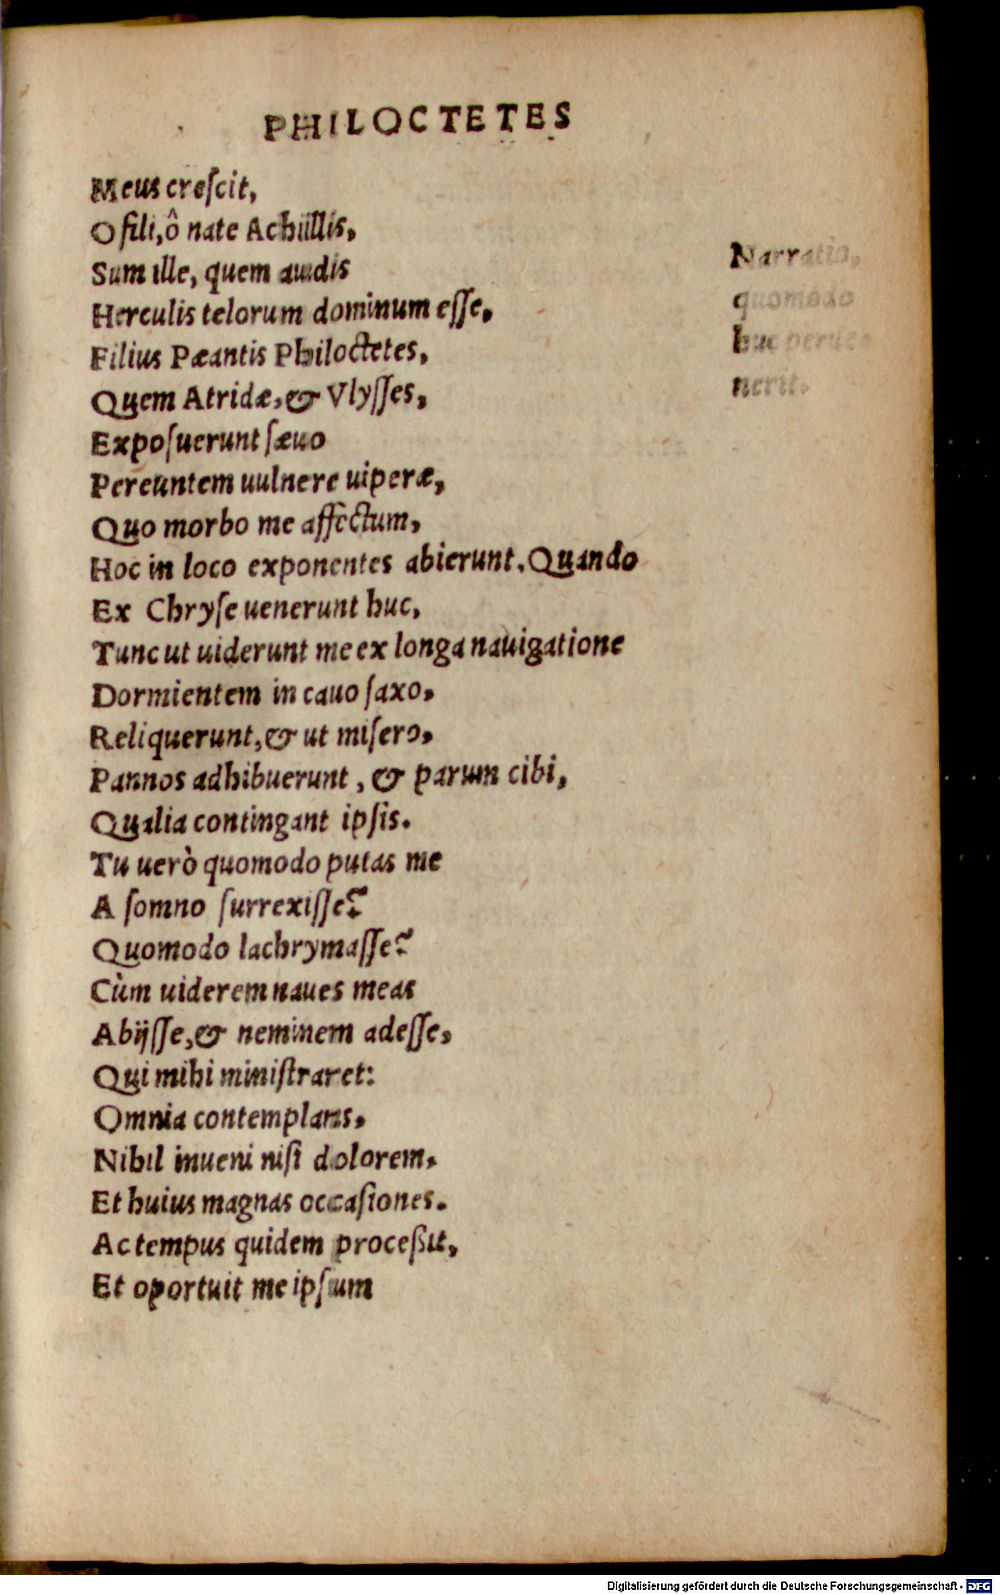 PHILOCTETES
Meus creſcit,
O fili, ô nate Achillis,
Sum ille, quem audis
Herculis telorum dominum eſſe,
Filius Pæantis Philoctetes,
Quem Atridæ, & Vlyſſes,
Expoſuerunt ſæuo
Pereuntem uulnere uiperæ,
Quo morbo me affectum,
Hoc in loco exponentes abierunt. Quando
Ex Chryſe uenerunt huc,
Tunc ut uiderunt me ex longa nauigatione
Dormientem in cauo ſaxo,
Reliquerunt, & ut miſero,
Pannos adhibuerunt, & parum cibi,
Qualia contingant ipſis.
Tu uerò quomodo putas me
A ſomno ſurrexiſſe?
Quomodo lachrymaſſe?
Cùm uiderem naues meas
Abijſſe, & neminem adeſſe,
Qui mihi miniſtraret:
Omnia contemplans,
Nihil inueni niſi dolorem,
Et huius magnas occaſiones.
Ac tempus quidem proceßit,
Et oportuit me ipſum
Narratio,
quomodo
huc perue-
nerit.
Digitalisierung gefördert durch die Deutsche Forschungsgemeinschaft - DFG